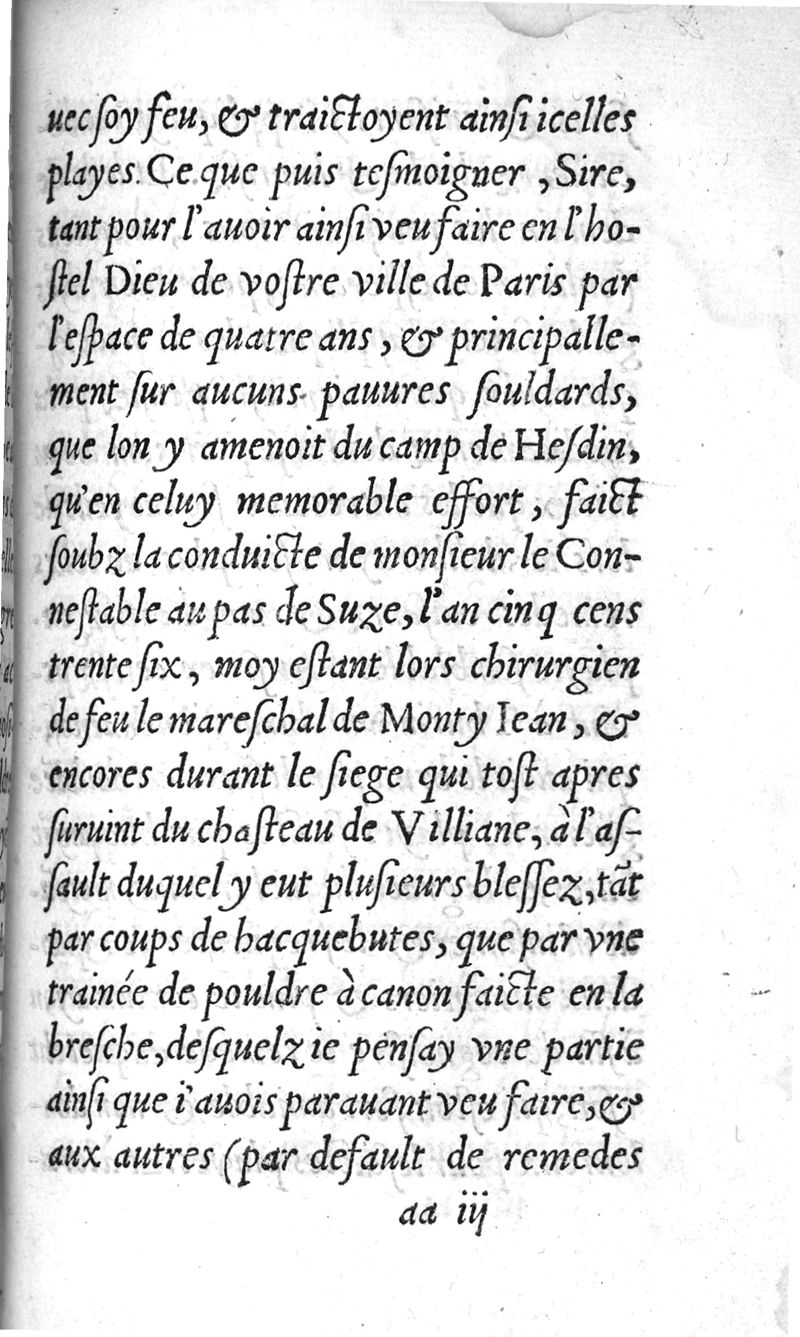 uec soy feu, & traictoyent ainsi icelles
playes. Ce que puis tesmoigner, Sire,
tant pour l'auoir ainsi veu faire en l'ho-
stel Dieu de vostre ville de Paris par
l'espace de quatre ans, & principalle-
ment sur aucuns pauures souldards,
que lon y amenoit du camp de Hesdin,
qu'en celuy memorable effort, faict
soubz la conduicte de monsieur le Con-
nestable au pas de Suze, l'an cinq cens
trente six, moy estant lors chirurgien
de feu le mareschal de Monty Iean, &
encores durant le siege qui tost apres
suruint du chasteau de Villiane, à l'as-
sault duquel y eut plusieurs blessez, tãt
par coups de hacquebutes, que par vne
trainée de pouldre à canon faicte en la
bresche, desquelz ie pensay vne partie
ainsi que i'auois parauant veu faire, &
aux autres (par default de remedes
aa iij